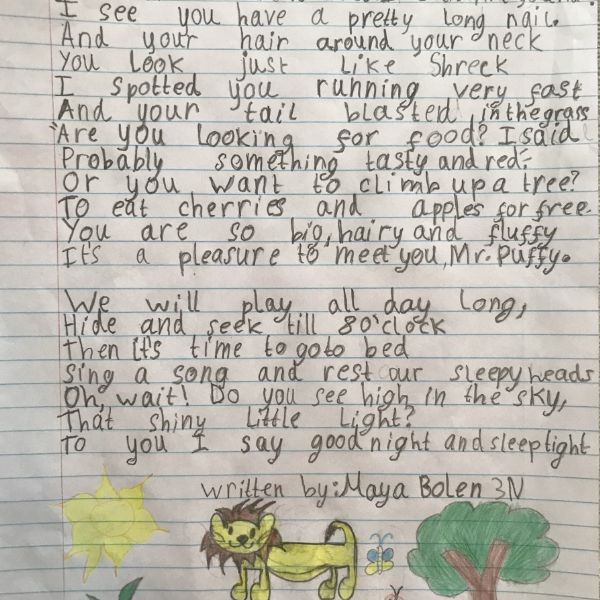 I see you have a pretty long nail.
And your hair around your neck
You look just like Shreck
I spotted you running very fast
And your tail blasted in the grass
"Are you looking for food? I said
Probably something tasty and red-
Or you want to climb up a tree?
To eat cherries and apples for free.
You are so big, hairy and fluffy
It's a pleasure to meet you, Mr. Puffy.
We will play all day long,
Hide and seek till 8 o'clock
Then it's time to go to bed
Sing a song and rest our sleepy heads
Oh, wait! Do you see high in the sky,
That shiny little light?
To you I say good night and sleep tight
written by: Maya Bolen 3N